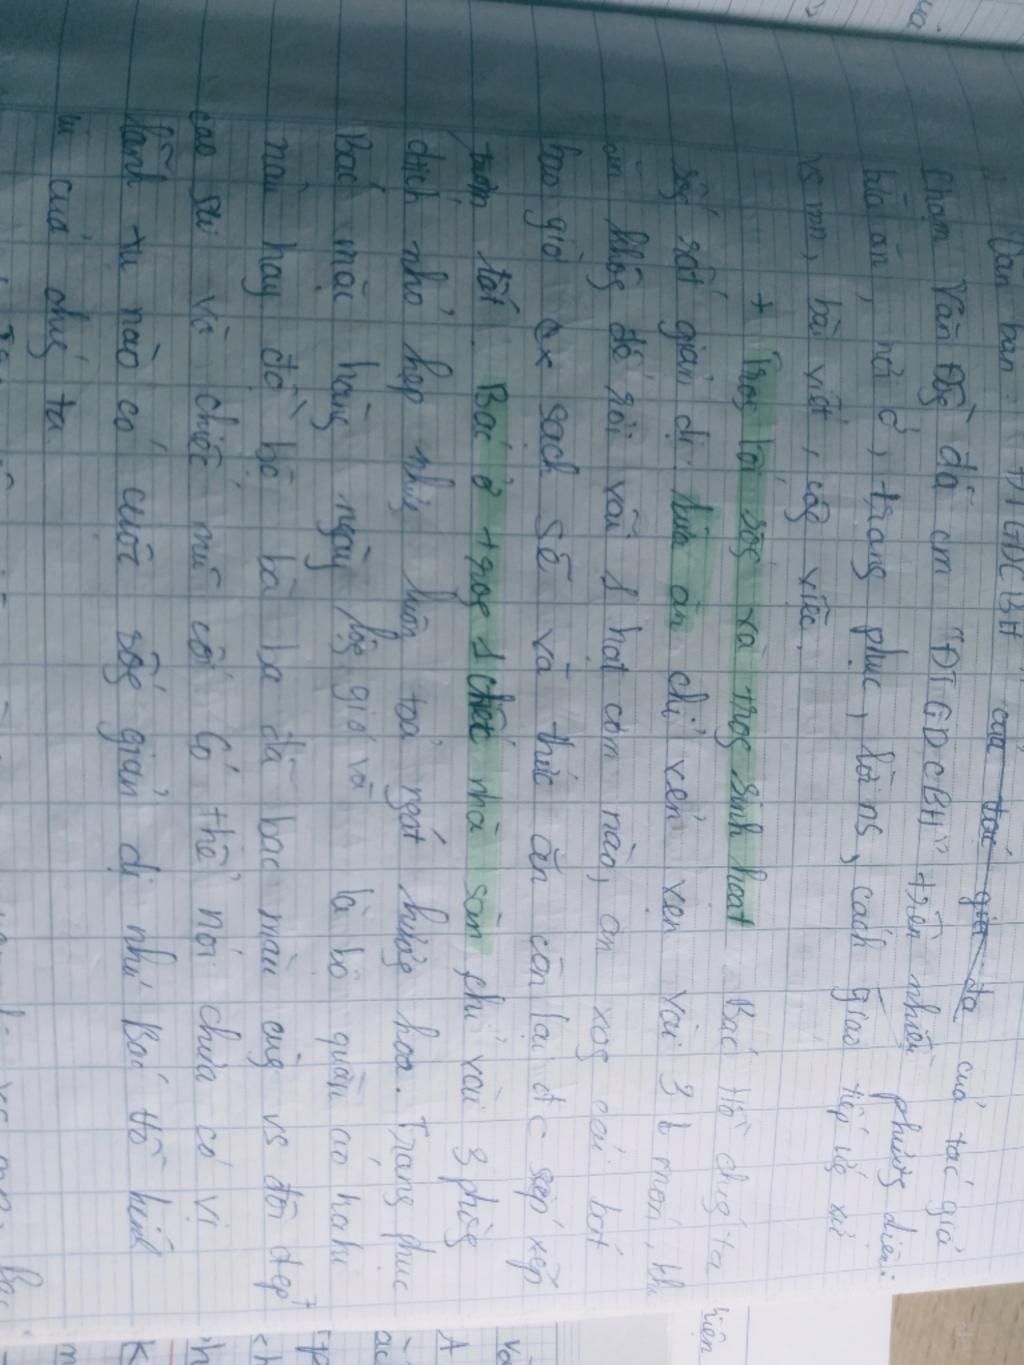 Văn bản "ĐTGDCBH" của tác giả ta của tác giả
Phạm Văn Đồg đã cm "ĐTGDCBH" trên nhiều phương diện:
bữa ăn, nơi ở, trang phục, lời ns, cách giao tiếp ứg xử
vs mn, bài viết, côg việc.
+ Trog lối sốg và trog sinh hoạt Bác Hồ chúg ta
sốg rất giản dị: bữa ăn chỉ vẻn vẹn vài 3 món, khi
ăn khôg để rơi vãi 1 hạt cơm nào, ăn xog cái bát
bao giờ cx sạch sẽ và thức ăn còn lại đc sắp xếp
tươm tất. Bác ở trog 1 chiếc nhà sàn chỉ vài 3 phòg
chích nhỏ hẹp nhưg luôn toả ngát hươg hoa. Trang phục
Bác mặc hàng ngày lộg gió và là bộ quần áo kaki
nâu hay đồ bộ bà ba đã bạc màu cùg vs đôi dép
cao su và chiếc mũ cối. Có thể nói chưa có vị
lãnh tụ nào có cuộc sốg giản dị như Bác Hồ kính
iu của chúg ta.
hiện